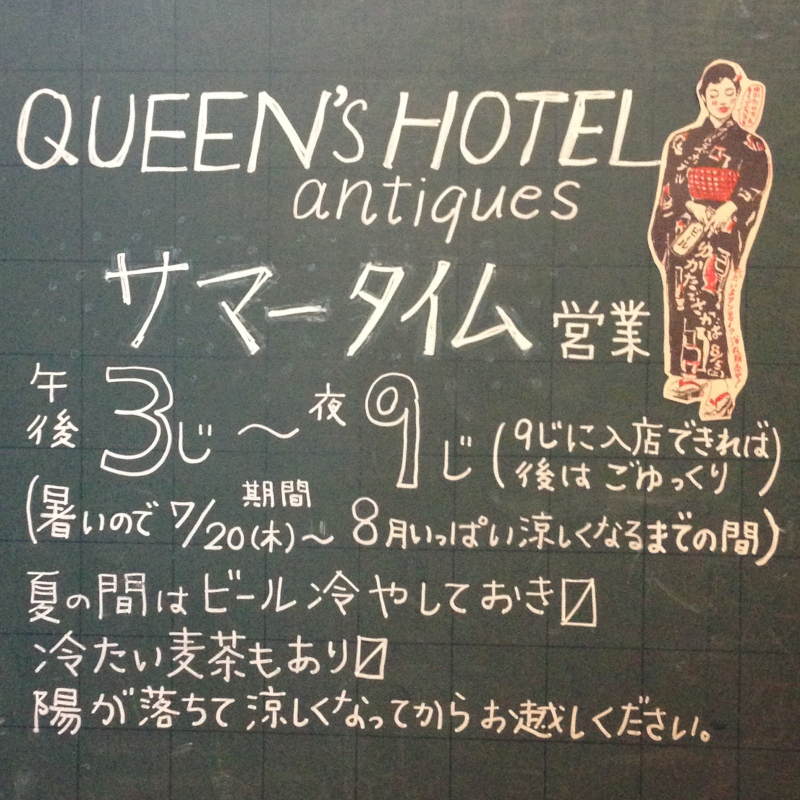 QUEEN'S HOTEL
antiques
サマータイム 営業
午後3じ〜夜9じ(9じに入店できれば後はごゆっくり)
(暑いので 期間 7/20(木)〜8月いっぱい涼しくなるまでの間)
夏の間はビール冷やしておき〼
冷たい麦茶もあり〼
陽が落ちて涼しくなってからお越しください。
ビール
ゆかたござかは